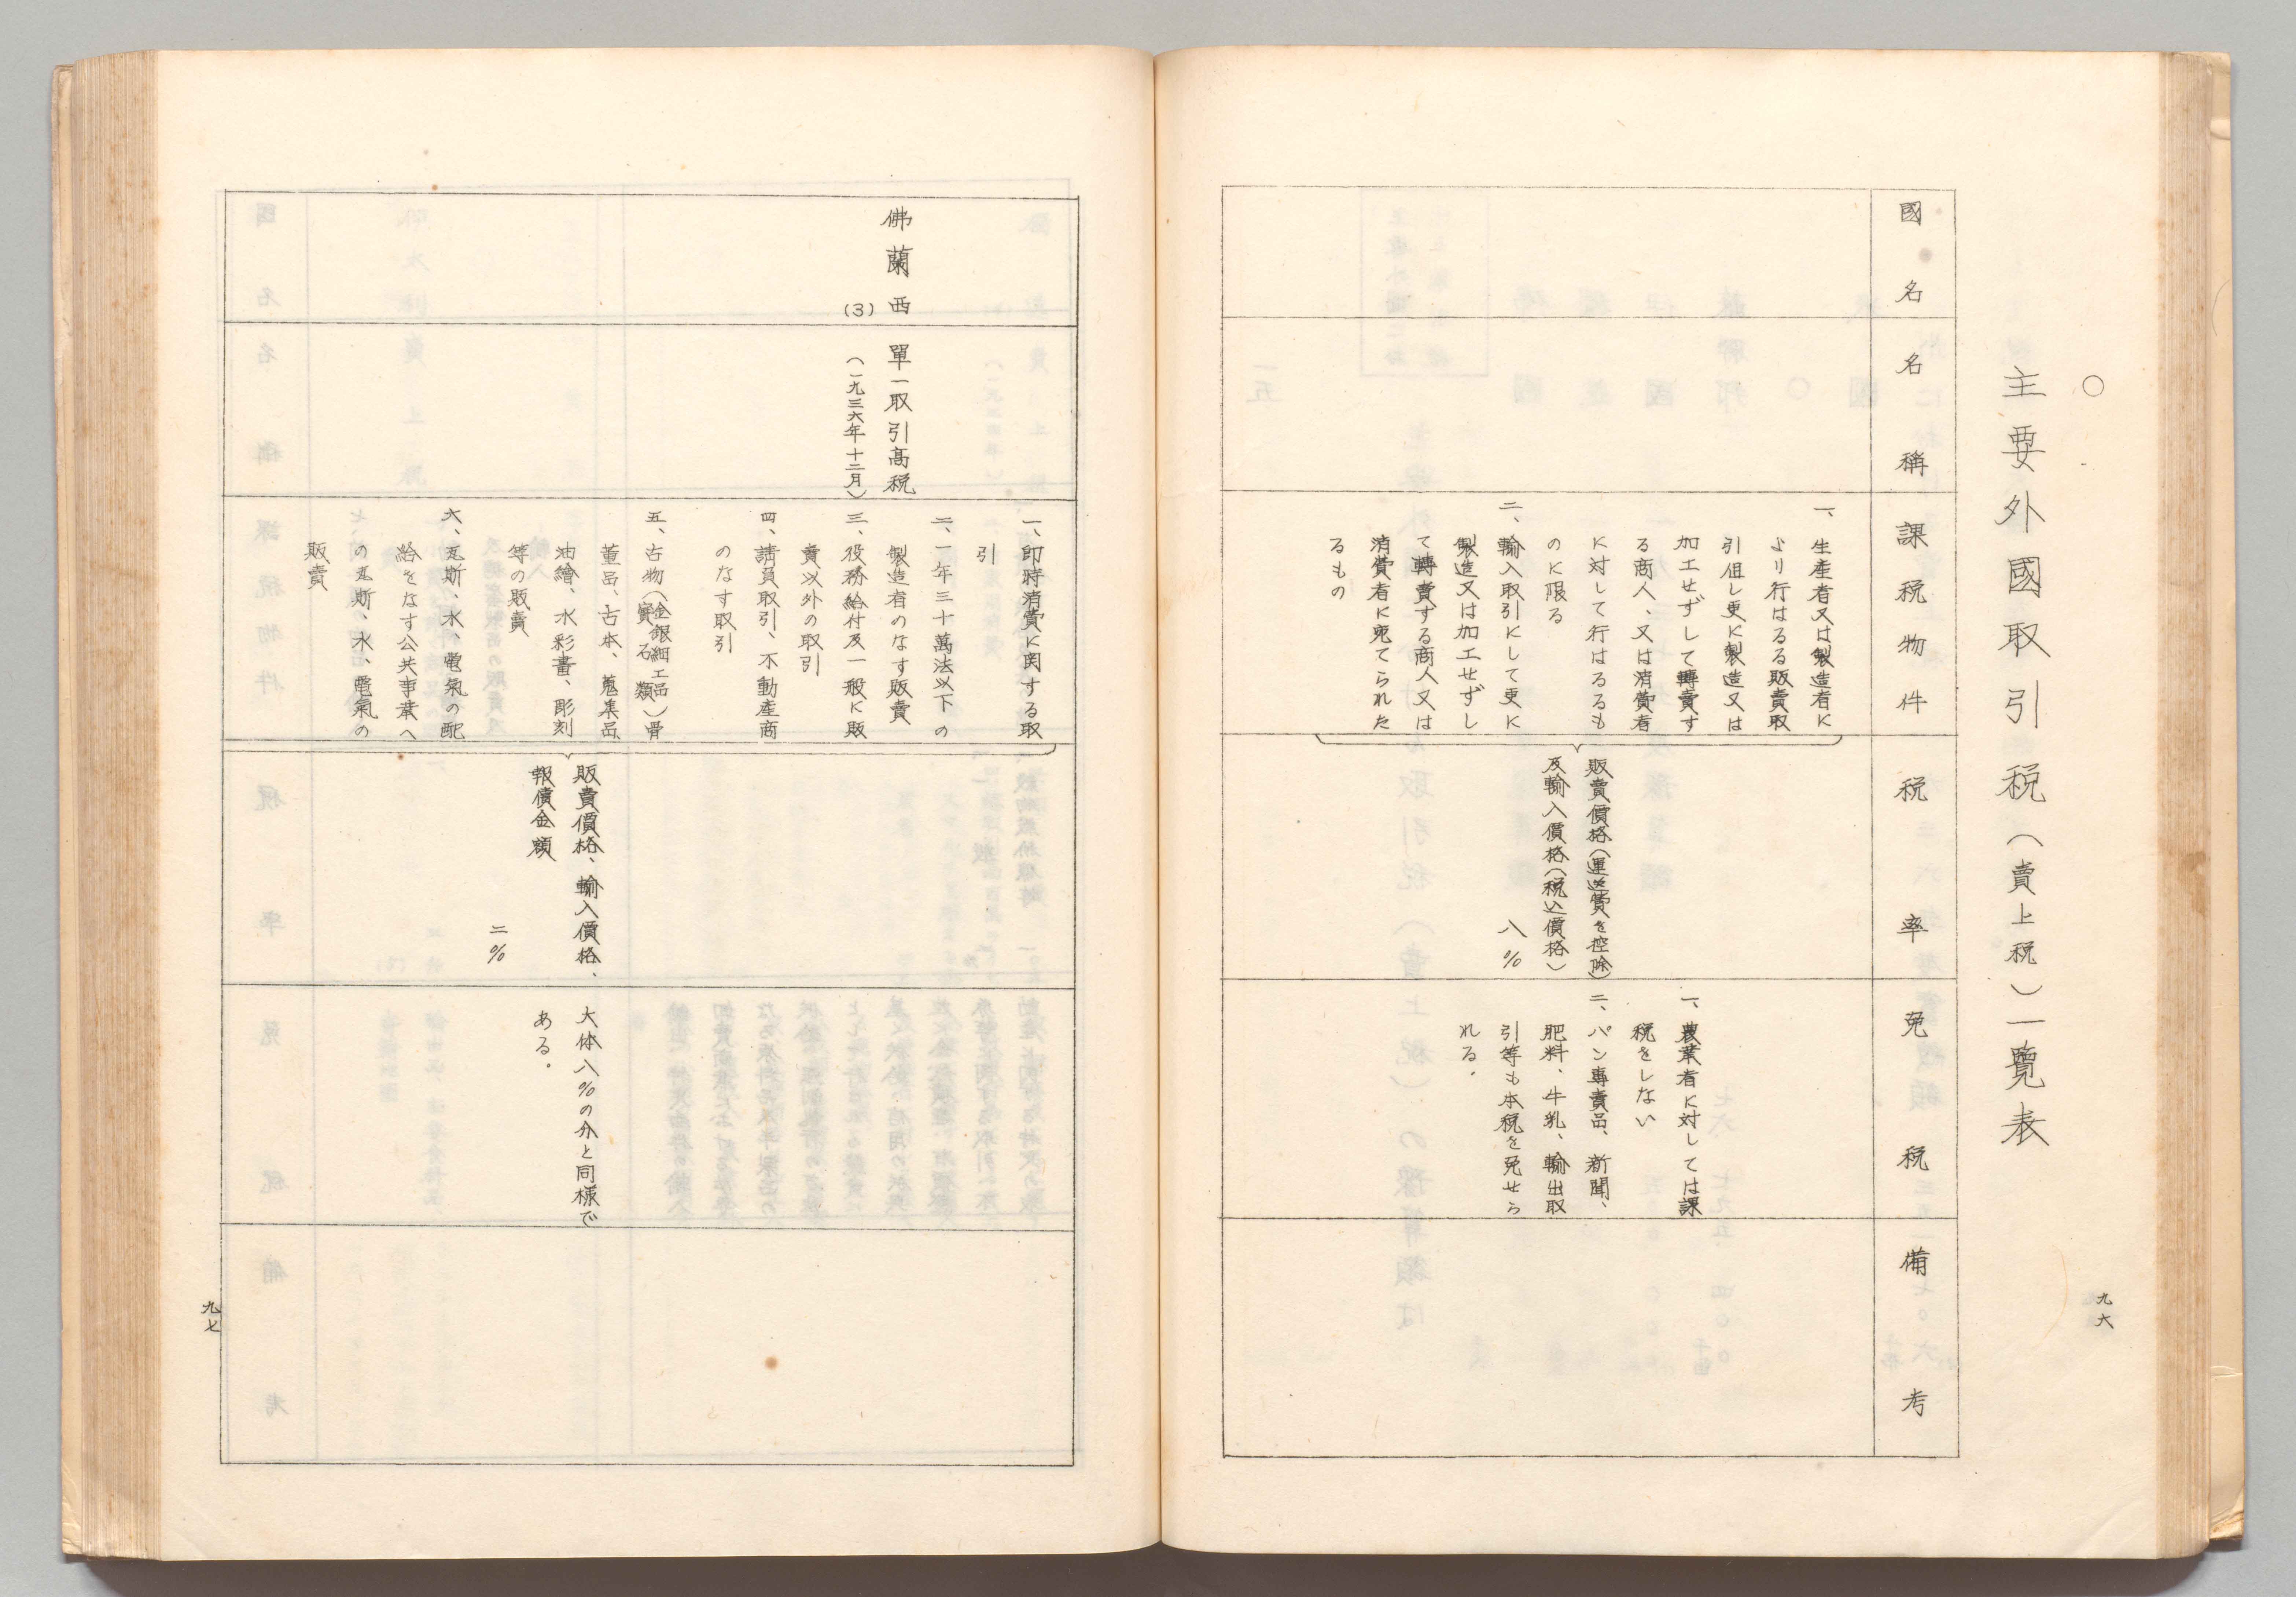 ○
主要外國取引税（賣上税）一覽表
九六
國名
名稱
課税物件
税率
免税
備考
一、生産者又は製造者に
より行はるる販賣取
引但し更に製造又は
加工せずして轉賣す
る商人、又は消費者
に対して行はるるも
のに限る
二、輸入取引にして更に
製造又は加工せずし
て轉賣する商人又は
消費者に宛てられた
るもの
販賣價格（運送費を控除）
及輸入價格（税込價格）
八％
一、農業者に対しては課
税をしない
二、パン專賣品、新聞、
肥料、牛乳、輸出取
引等も本税を免せら
れる．
佛蘭西
(3)
單一取引高税
（一九三六年十二月）
一、即時消費に関する取
引
二、一年三十萬法以下の
製造者のなす販賣
三、役務給付及一般に販
賣以外の取引
四、請負取引、不動産商
のなす取引
五、古物（金銀細工品寳石類）骨
董品、古本、蒐集品、
油繪、水彩畫、彫刻
等の販賣
六、瓦斯、水、電氣の配
給をなす公共事業へ
の瓦斯、水、電氣の
販賣
販賣價格、輸入價格、
報償金額
二％
大体八％の分と同様で
ある．
九七